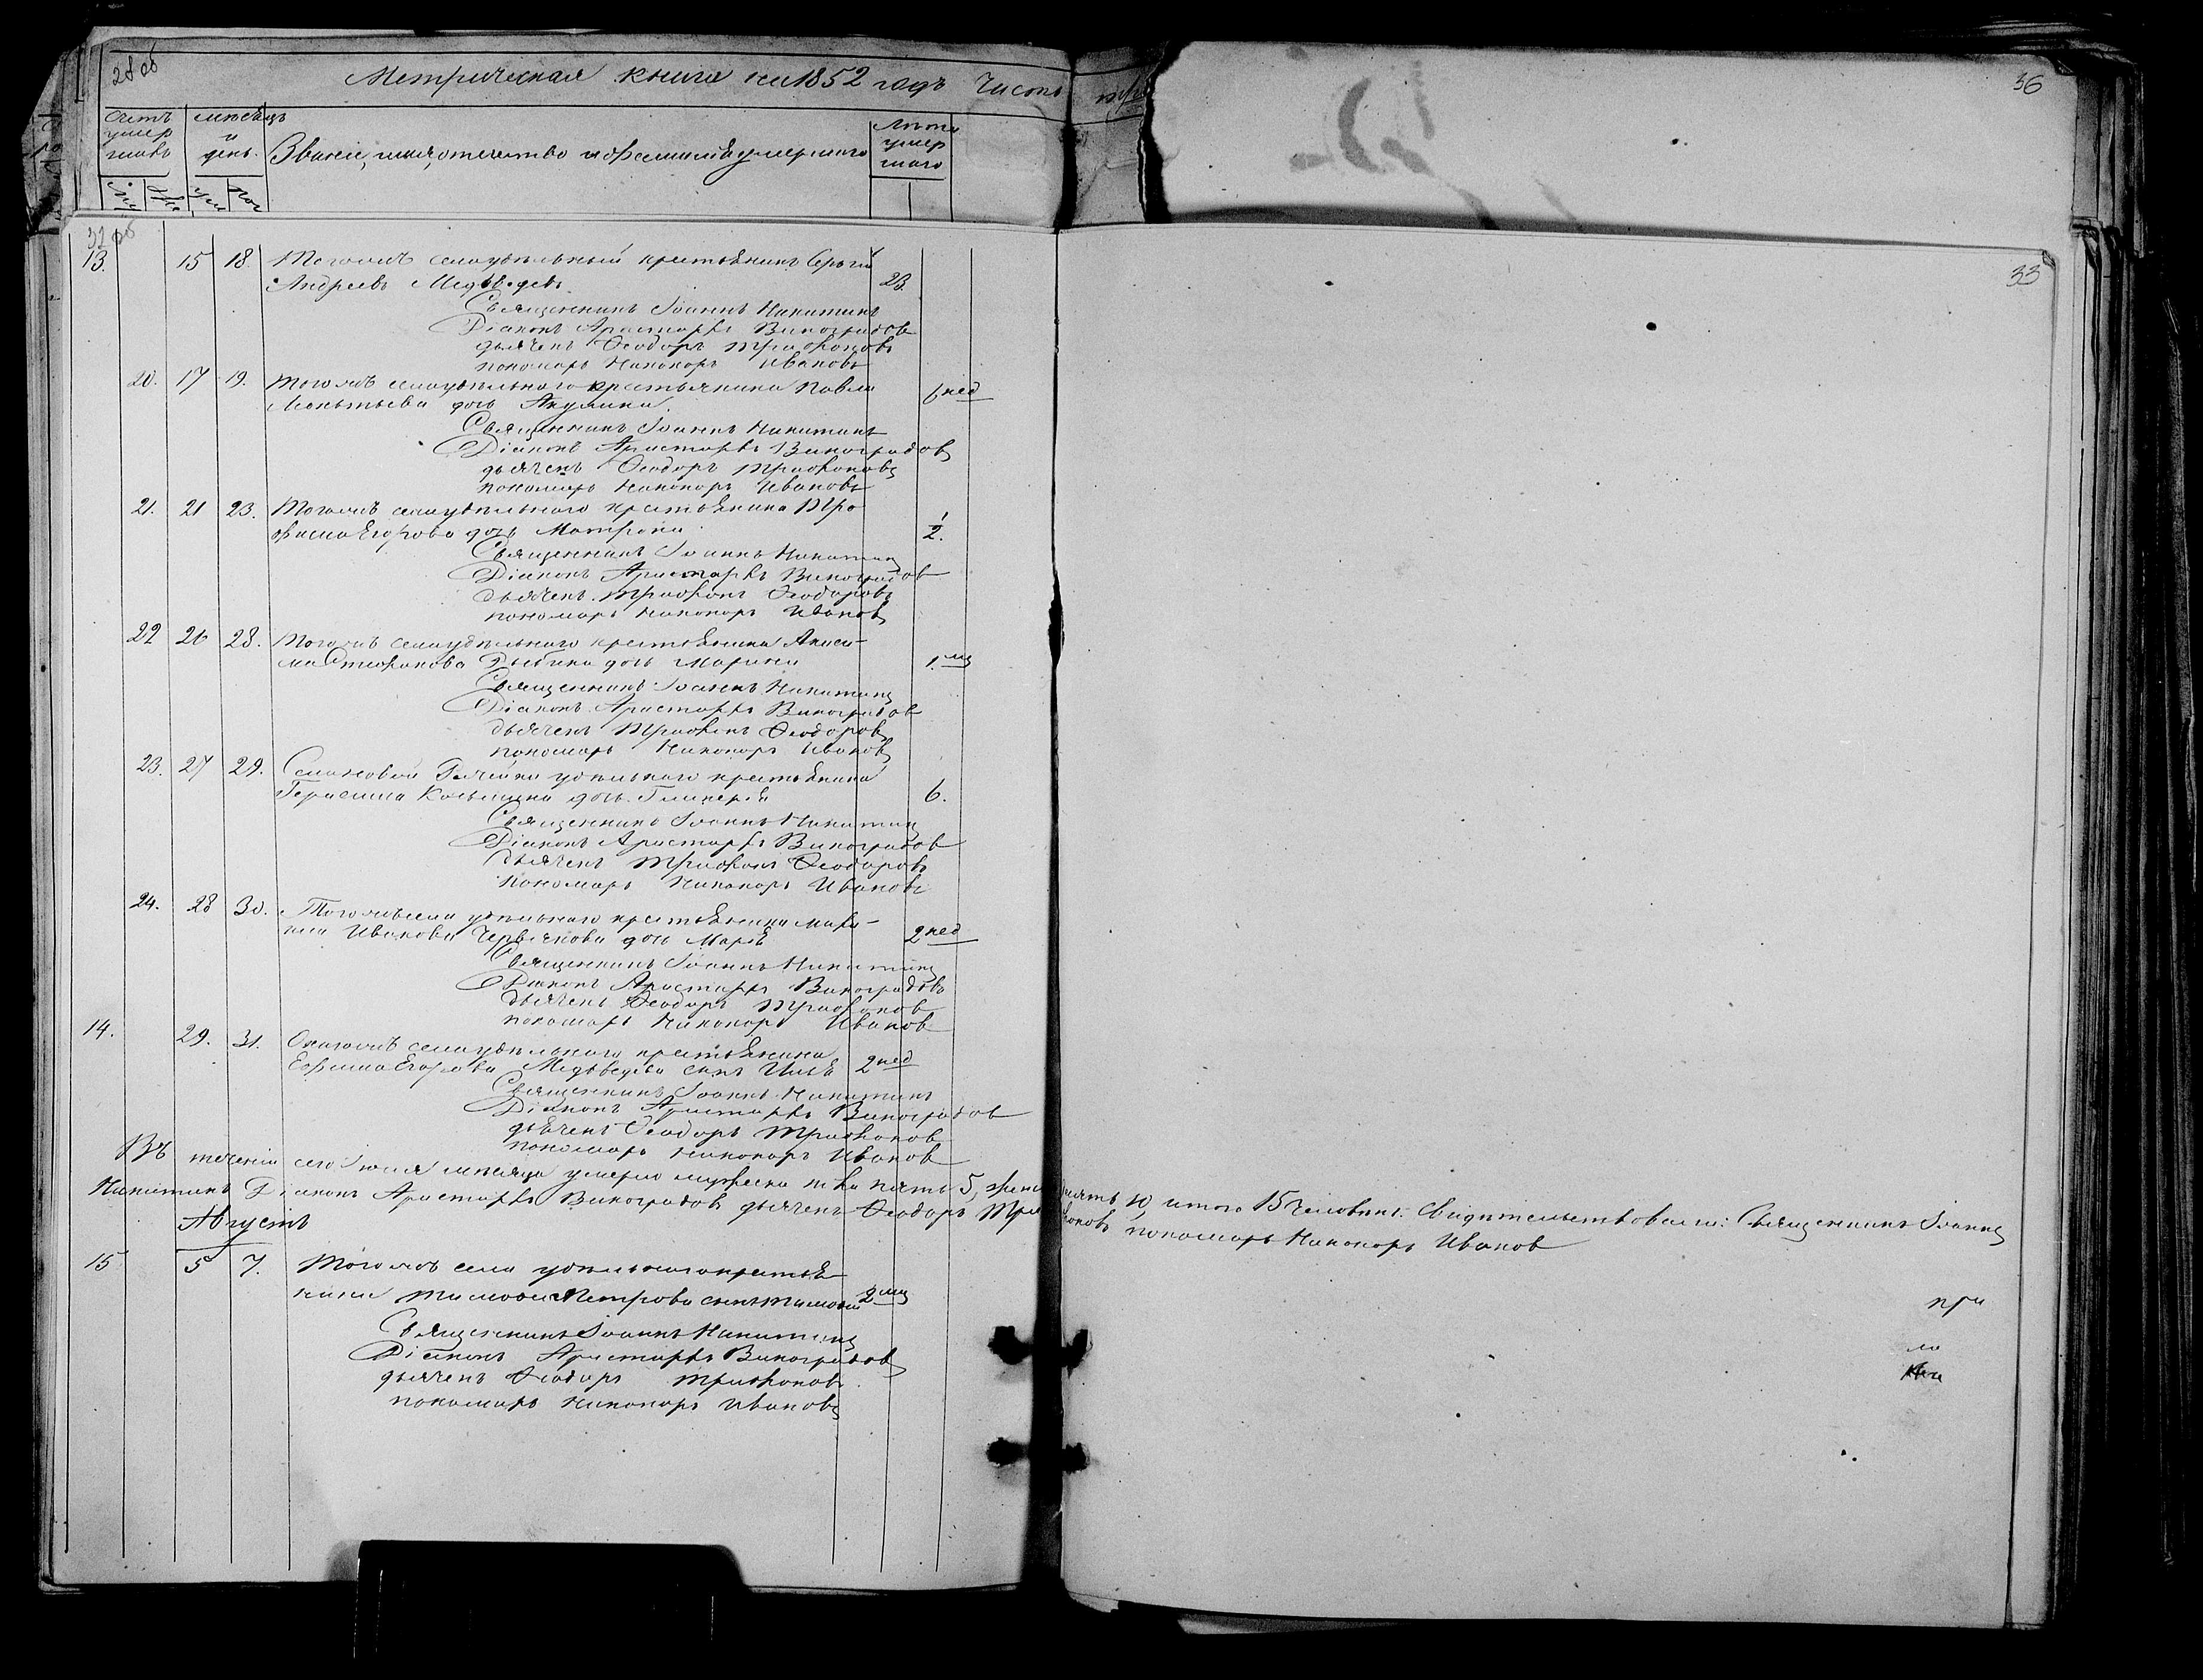 28 об
Метрическая книга на 1852 годъ Часть
36
Счетъ умер шихъ
Мѣсяцъ и день.
Званіе, имя, отчество и фамилія умершаго
Лѣта умер шаго
32 об
33
13. 15 18. Тогожъ села удѣльный крестьянинъ Сергій
Андреевъ Медвѣдевъ 23.
Священникъ Іоаннъ Никитинъ
Діаконъ Аристархъ Виноградовъ
дьячекъ Ѳеодоръ Трифоновъ
пономарь Никаноръ Ивановъ
20. 17 19. Тогожъ села удѣльнаго крестьянина Павла
Леонтьева дочь Акулина. 6 нед
Священникъ Іоаннъ Никитинъ
Діаконъ Аристархъ Виноградовъ
дьячекъ Ѳеодоръ Трифоновъ
пономарь Никаноръ Ивановъ
21. 21 23. Тогожъ села удѣльнаго крестьянина Тро
фима Егорова дочь Матрона 1/2.
Священникъ Іоаннъ Никитинъ
Діаконъ Аристархъ Виноградов
дьячекъ Трифонъ Ѳеодоровъ
пономарь Никаноръ Иванов
22 26 28. Тогожъ села удѣльнаго крестьянина Аниси-
ма Стефанова дочь Марина 1. мц
Священникъ Іоаннъ Никитинъ
Діаконъ Аристархъ Виноградов
дьячекъ Трифонъ Ѳеодоровъ
пономарь Никаноръ Ивановъ
23. 27 29. удѣльнаго крестьянина
Герасима Козьмина дочь Гликерія 6.
Священникъ Іоаннъ Никитинъ
Діаконъ Аристархъ Виноградов
дьячекъ Трифонъ Ѳеодоровъ
пономарь Никаноръ Ивановъ
24. 28 30. Тогожъ села удѣльнаго крестьянина
Иванова Червякова дочь Марія 2 нед
Священникъ Іоаннъ Никитинъ
Діаконъ Аристархъ Виноградовъ
дьячекъ Ѳеодоръ Трифонов
пономарь Никаноръ Иванов
14. 29. 31. села удѣльнаго крестьянина
Ефима Егорова Медвѣдева сынъ Илья 2 нед
Священникъ Іоаннъ Никитинъ
Діаконъ Аристархъ Виноградов
дьячекъ Ѳеодоръ Трифонов
пономарь Никаноръ Иванов
Въ теченіи сего Іюля мѣсяца умерло мужеска пола пять 5, женска десять 10, итого 15 человѣкъ. Свидѣтельствовали: Священникъ Іоаннъ
Никитинъ Діаконъ Аристархъ Виноградовъ дьячекъ Ѳеодоръ Трифоновъ пономарь Никаноръ Иванов
Августъ
15 5 7. Тогожъ села удѣльнаго крестья
нина Тимофея Петрова сынъ Тимофей 2 мц
Священникъ Іоаннъ Никитинъ
Діаконъ Аристархъ Виноградовъ
дьячекъ Ѳеодоръ Трифоновъ
пономарь Никаноръ Ивановъ